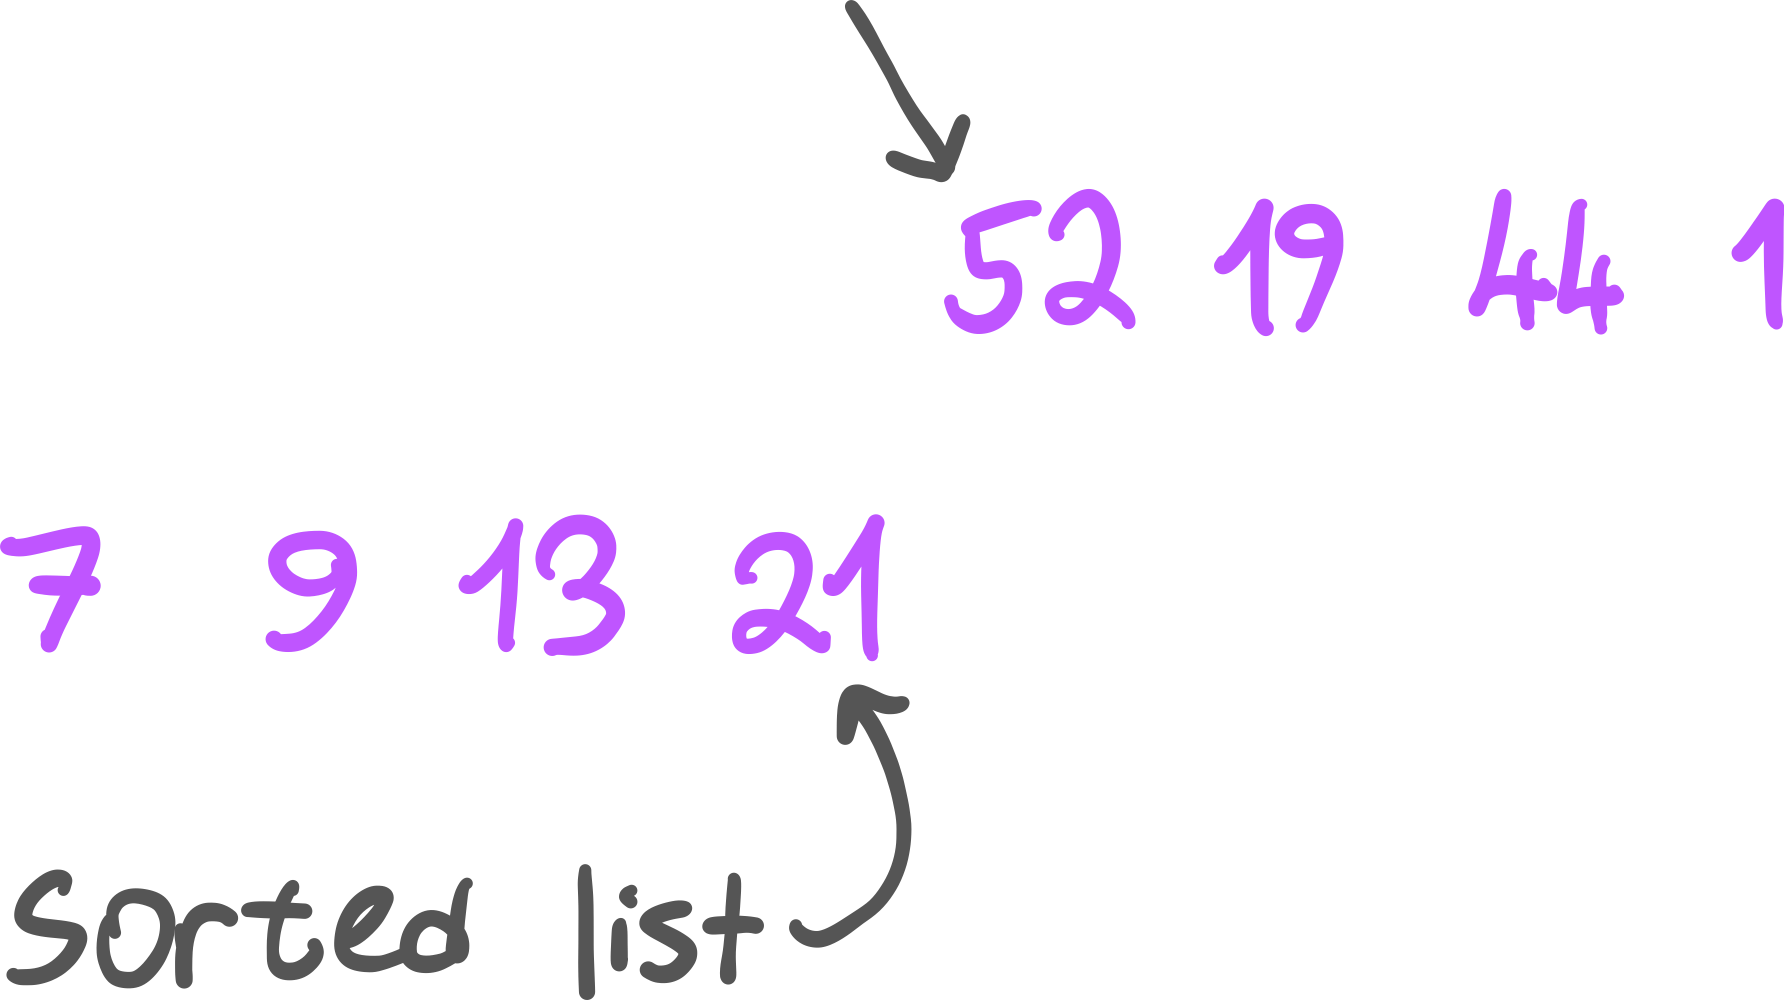 52 19 44 1
7 9 13 21
Sorted list